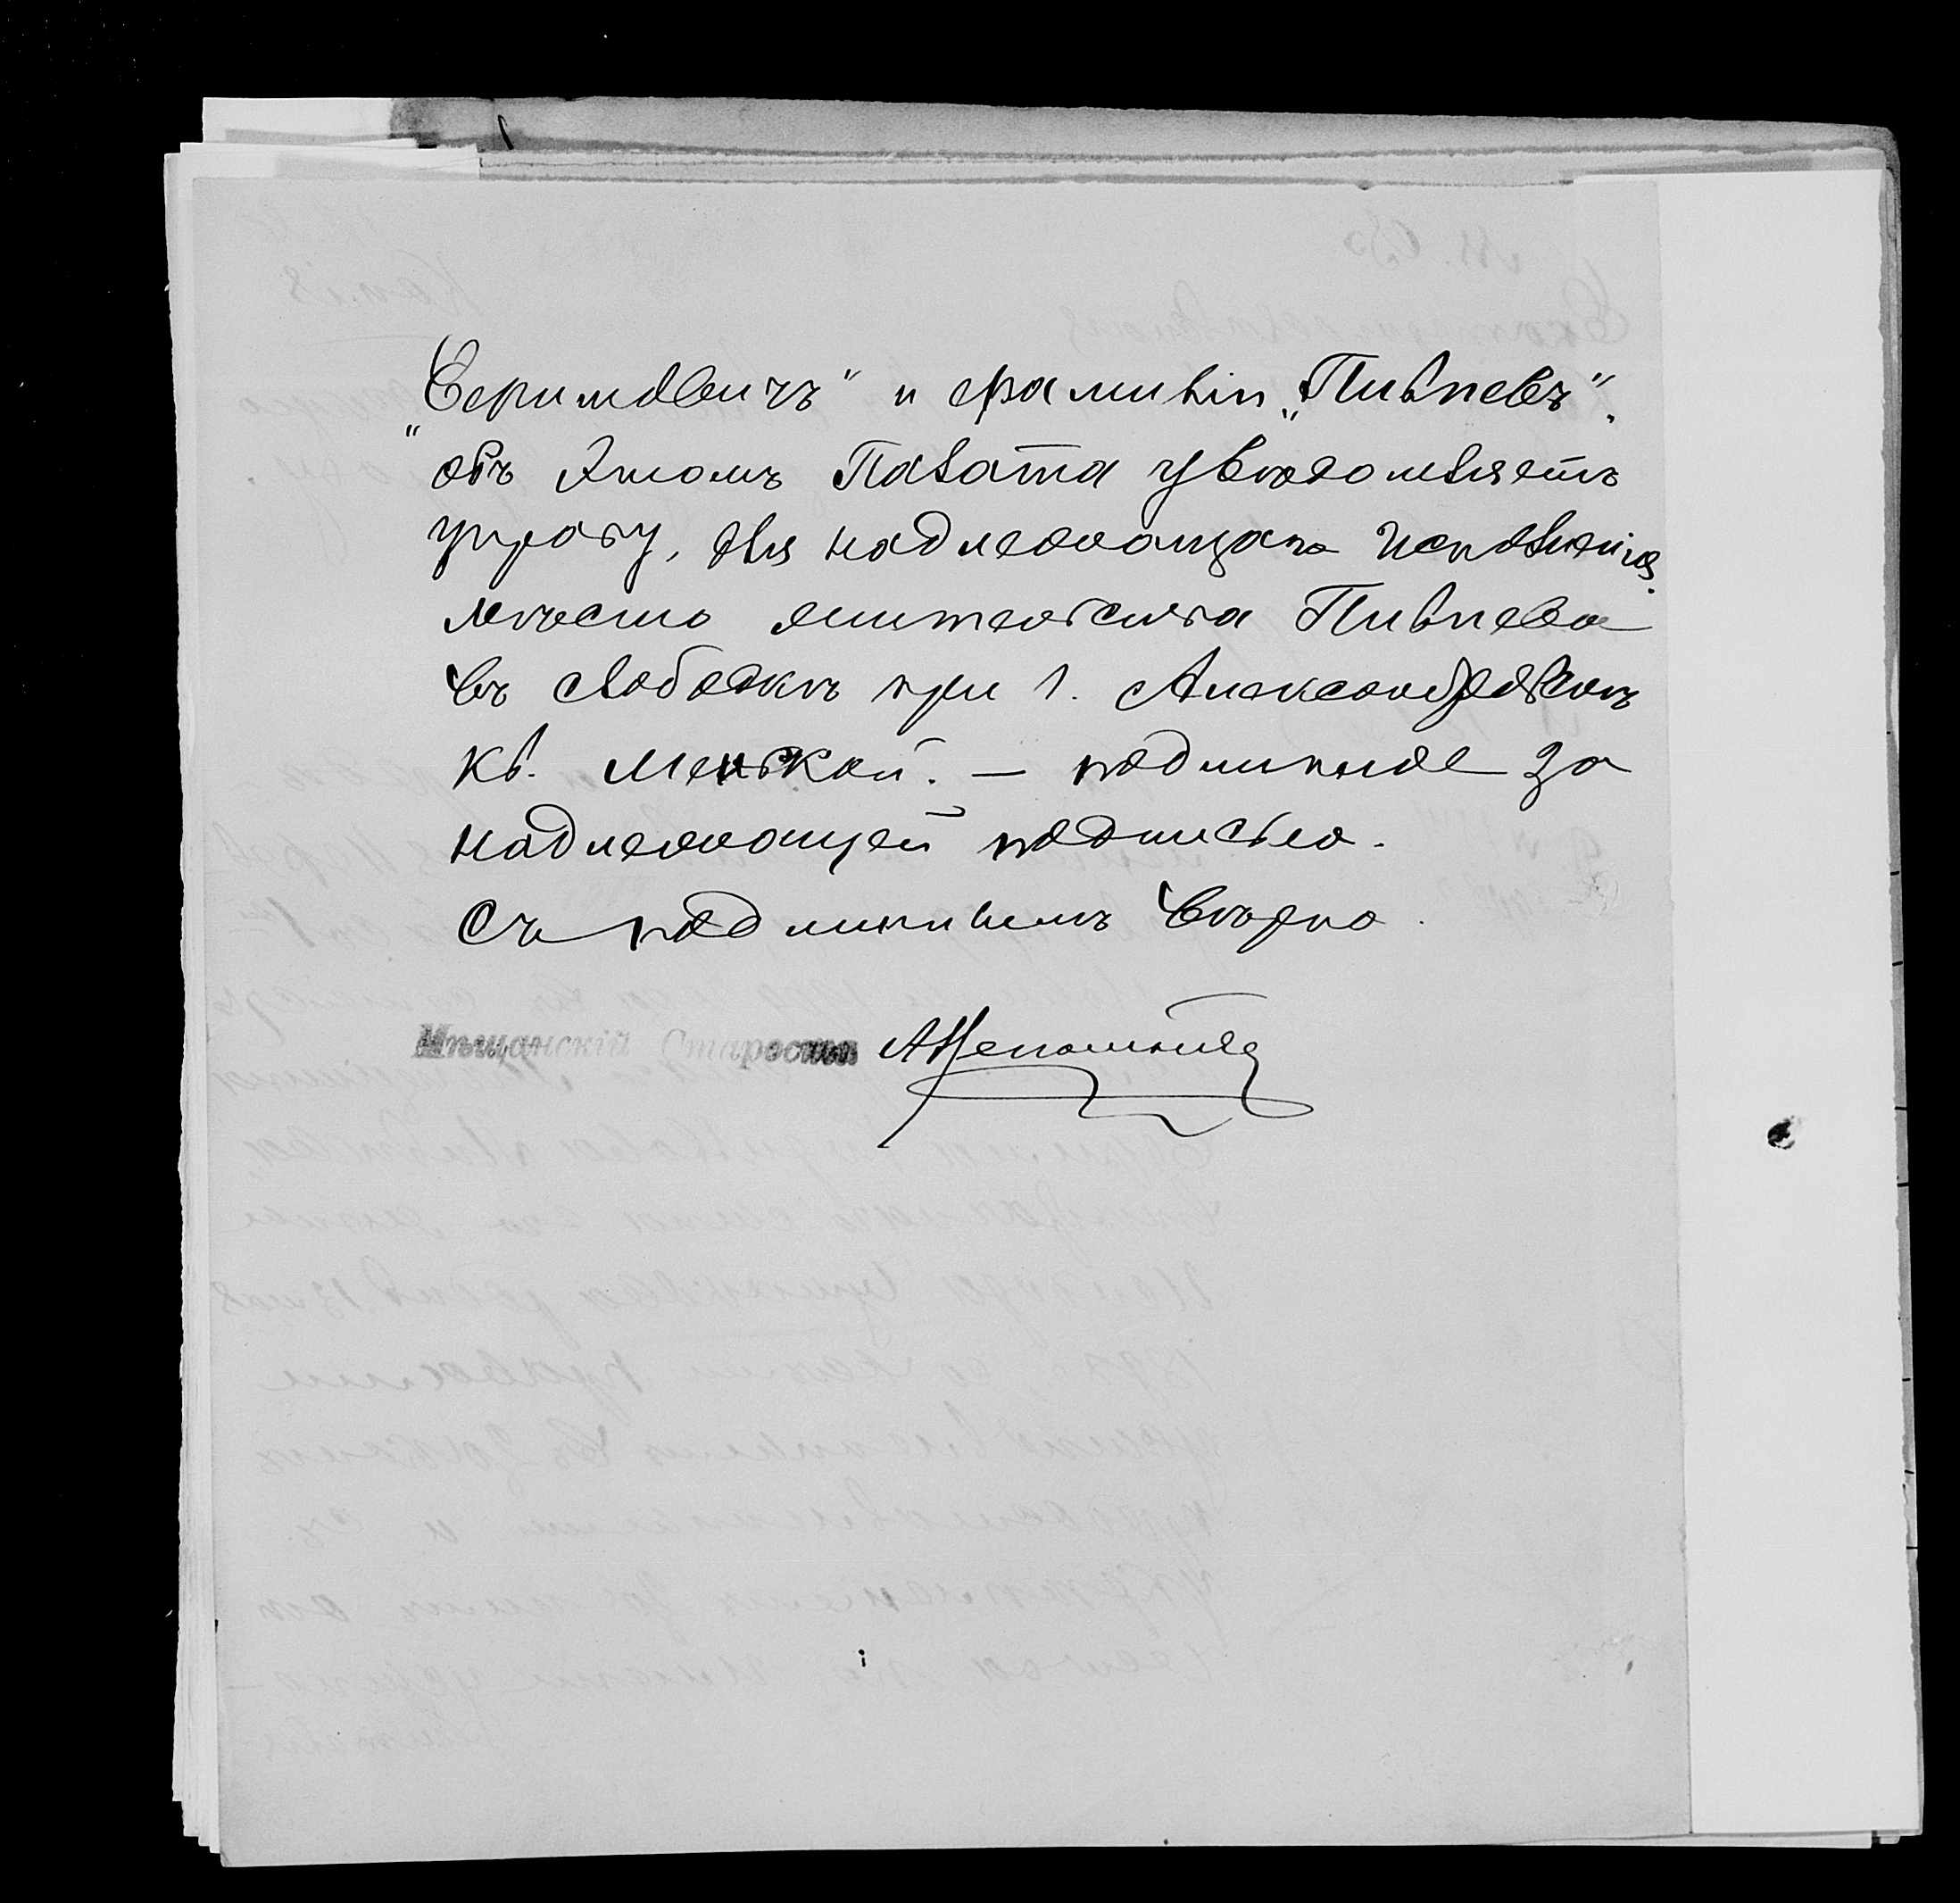 „Ефимовичъ" и фамилiи „Пивневъ".
объ этомъ Палата увѣдомляетъ
управу, для надлежащаго исполненія.
мѣсто жительства Пивнева
въ слободкѣ при г. Александровскѣ
кв. Менской. — подлинное за
надлежащей подписью.
Съ подлиннымъ вѣрно.
Мѣщанскій Староста